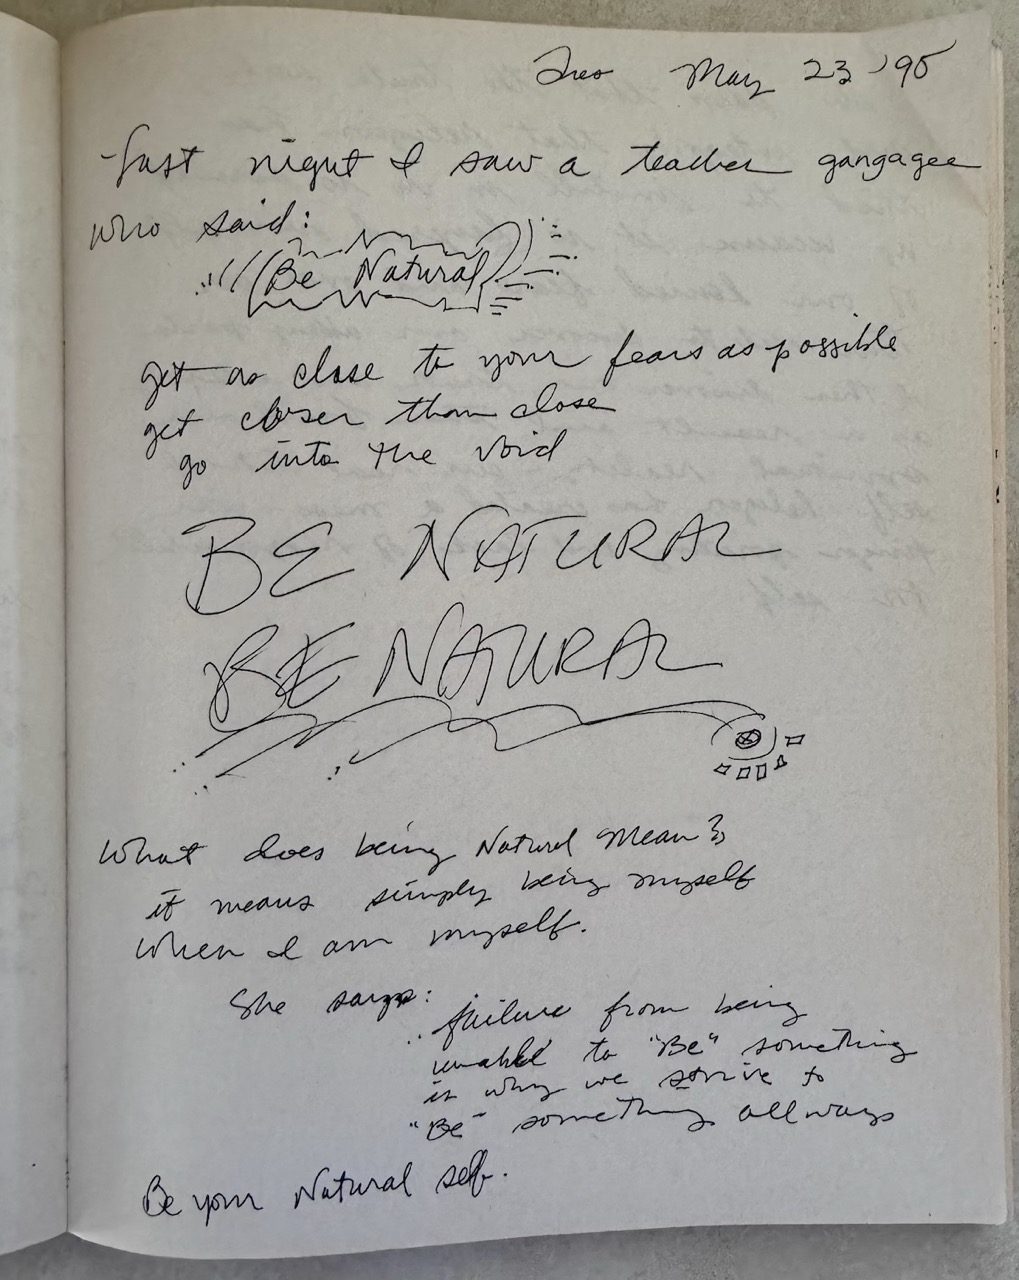 Tues May 23, '95
Last night I saw a teacher gangagee
who said:
Be Natural
get as close to your fears as possible
get closer than close
go into the void
BE NATURAL
BE NATURAL
What does being Natural Mean?
it means simply being myself
When I am myself.
She says:
failure from being
unable to "Be" something
is why we strive to
"Be" something allways
Be your Natural self.